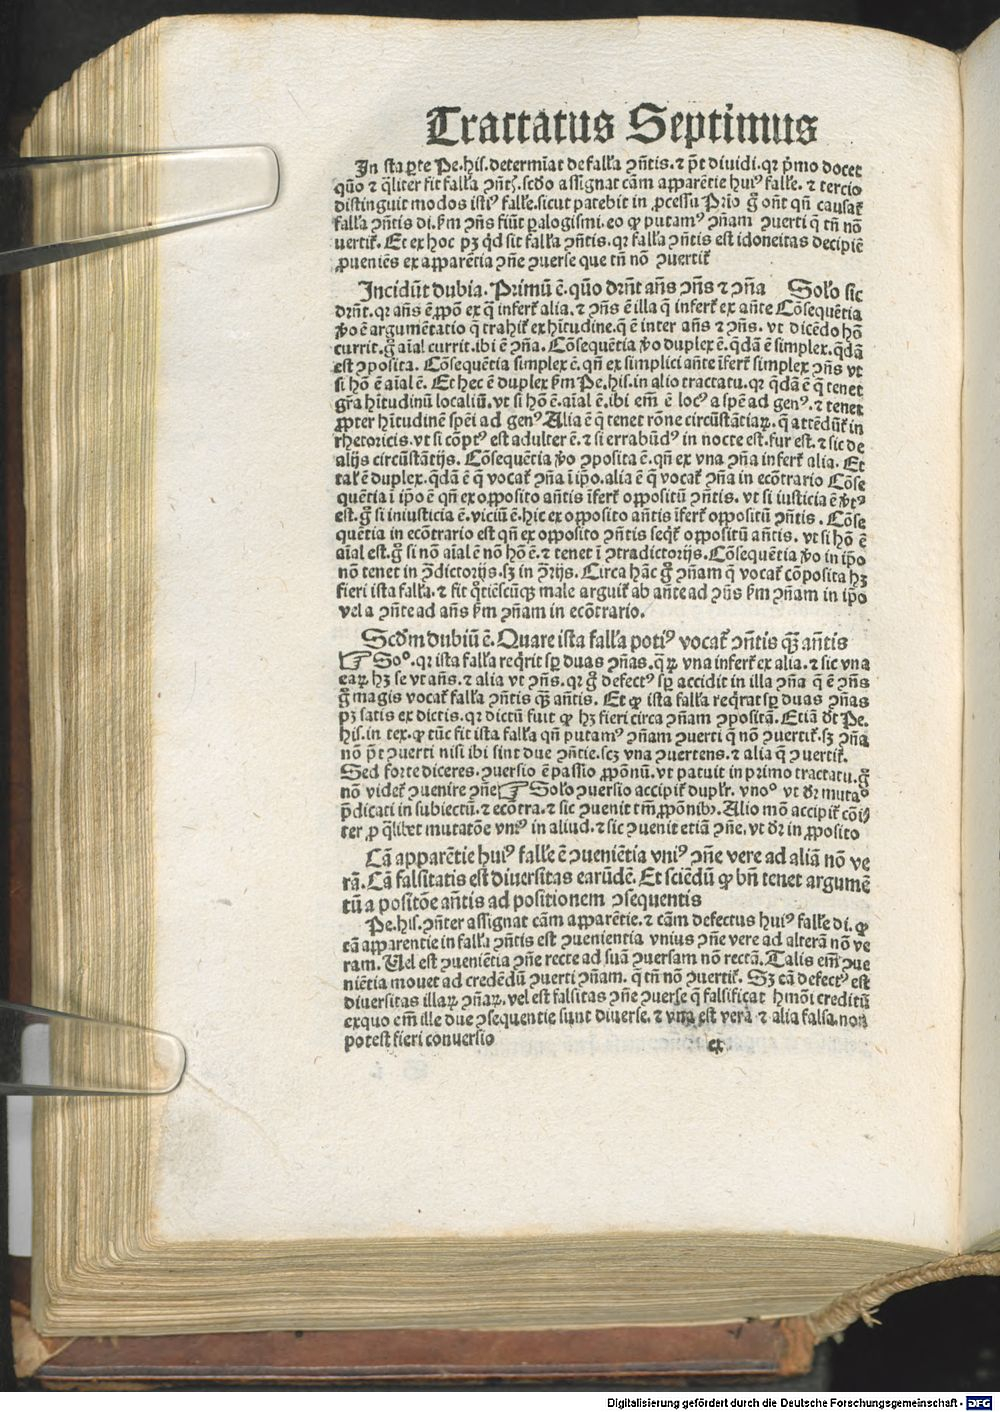 Tractatus Septimus
In sta ꝑte Pe.his.determīat de fallīa ꝯñtis.⁊ p̄t diuidi.qꝛ pͥmo docet
qūo ⁊ q̄liter fit fallīa ꝯñtꝭ.scd̄o assignat cām apparētie huiꝰ fallīe.⁊ tercio
distinguit modos istiꝰ fallīe.sicut patebit in ꝓcessu Prīo g̊ on̄t qñ causat᷑
fallīa ꝯñtis di.ẜm ꝯñs fiūt ꝑalogismi.eo ꝙ putamꝰ ꝯñam ꝯuerti q̄ tñ nō
uertit᷑. Et ex hoc pꝫ qͥd sit fallīa ꝯñtis.qꝛ fallīa ꝯñtis est idoneitas decipiē
ꝓueniēs ex apparētia ꝯñe ꝯuerse que tñ nō ꝯuertit᷑
Incidūt dubia. Primū ē.quō dr̄nt añs ꝯñs ⁊ ꝯña Solo sic
dr̄nt.qꝛ añs ē ꝓpō ex q̄ infert᷑ alia.⁊ ꝯñs ē illa q̄ infert᷑ ex añte Cōsequētia
ꝟo ē argumētatio q̄ trahit᷑ ex hītudine.q̄ ē inter añs ⁊ ꝯñs. vt dicēdo hō
currit.g̊ aīal currit.ibi ē ꝯña. Cōsequētia ꝟo duplex ē.q̄dā ē simplex.q̄dā
est ꝯposita. Cōsequētia simplex ē.qñ ex simplici añte īfert᷑ simplex ꝯñs vt
si hō ē aīal ē. Et hec ē duplex ẜm Pe.his.in alio tractatu.qꝛ q̄dā ē q̄ tenet
gr̄a hītudinū localiū.vt si hō ē.aīal ē.ibi em̄ ē locꝰ a spē ad genꝰ.⁊ tenet
ꝓpter hītudinē spēi ad genꝰ Alia ē q̄ tenet rōne circūstātiaꝝ.q̄ attēdūt᷑ in
rhetoricis.vt si cōptꝰ est adulter ē.⁊ si errabūdꝰ in nocte est.fur est.⁊ sic de
alijs circūstātijs. Cōsequētia ꝟo ꝯposita ē.qñ ex vna ꝯña infert᷑ alia. Et
tal᷑ ē duplex.q̄dā ē q̄ vocat᷑ ꝯña ī ip̄o.alia ē q̄ vocat᷑ ꝯña in ecōtrario Cōse
quētia ī ip̄o ē qñ ex opposito añtis īfert᷑ oppositū ꝯñtis. vt si iusticia ē ꝟtꝰ
est.g̊ si iniusticia ē.viciū ē.hic ex opposito añtis īfert᷑ oppositū ꝯñtis. Cōse
quētia in ecōtrario est qñ ex opposito ꝯñtis seqͥt᷑ oppositū añtis. vt si hō ē
aīal est.g̊ si nō aīal ē nō hō ē.⁊ tenet ī ꝯtradictorijs. Cōsequētia ꝟo in ip̄o
nō tenet in ꝯ̄dictorijs.sꝫ in ꝯ̄rijs. Circa hāc g̊ ꝯñam q̄ vocat᷑ cōposita hꝫ
fieri ista fallīa.⁊ fit qͦtiēscūqꝫ male arguit᷑ ab añte ad ꝯñs ẜm ꝯñam in ip̄o
vel a ꝯñte ad añs ẜm ꝯñam in ecōtrario.
Scd̄m dubiū ē. Quare ista fallīa potiꝰ vocat᷑ ꝯñtis qꝫ̄ añtis
☞ Soº.qꝛ ista fallīa reqͥrit sꝑ duas ꝯñas.q̄ꝝ vna infert᷑ ex alia.⁊ sic vna
eaꝝ hꝫ se vt añs.⁊ alia vt ꝯñs.qꝛ g̊ defectꝰ sꝑ accidit in illa ꝯña q̄ ē ꝯñs
g̊ magis vocat᷑ fallīa ꝯñtis qꝫ̄ añtis. Et ꝙ ista fallīa reqͥrat sꝑ duas ꝯñas
pꝫ satis ex dictis.qꝛ dictū fuit ꝙ hꝫ fieri circa ꝯñam ꝯpositā. Etiā dt̄ Pe.
his.in tex.ꝙ tūc fit ista fallīa qñ putamꝰ ꝯñam ꝯuerti q̄ nō ꝯuertit᷑.sꝫ ꝯña
nō p̄t ꝯuerti nisi ibi sint due ꝯñtie.scꝫ vna ꝯuertens.⁊ alia q̄ ꝯuertit᷑.
Sed forte diceres.ꝯuersio ē passio ꝓpōnū.vt patuit in primo tractatu.g̊
nō videt᷑ ꝯuenire ꝯñe ☞ Solo ꝯuersio accipit᷑ duplr̄. vnoº vt dr̄ mutaº
p̄dicati in subiectū.⁊ ecōtra.⁊ sic ꝯuenit tm̄ ꝓpōnibꝫ. Alio mō accipit᷑ cōiꝰ
ter ꝓ q̄libet mutatōe vniꝰ in aliud.⁊ sic ꝯuenit etiā ꝯñe.vt dr̄ in ꝓposito
Cā apparētie huiꝰ fallīe ē ꝯueniētia vniꝰ ꝯñe vere ad aliā nō ve
rā. Cā falsitatis est diuersitas earūdē. Et sciēdū ꝙ bñ tenet argumē
tū a positōe añtis ad positionem ꝯsequentis
Pe.his.ꝯñter assignat cām apparētie.⁊ cām defectus huiꝰ fallīe di.ꝙ
cā apparentie in fallīa ꝯñtis est ꝯuenientia vnius ꝯñe vere ad alterā nō ve
ram. Uel est ꝯueniētia ꝯñe recte ad suā ꝯuersam nō rectā. Talis em̄ ꝯue
niētia mouet ad credēdū ꝯuerti ꝯñam.q̄ tñ nō ꝯuertit᷑. Sꝫ cā defectꝰ est
diuersitas illaꝝ ꝯñaꝝ.vel est falsitas ꝯñe ꝯuerse q̄ falsificat hmōi creditū
exquo em̄ ille due ꝯsequentie sunt diuerse.⁊ vna est vera ⁊ alia falsa.non
potest fieri conuersio
ex
Digitalisierung gefördert durch die Deutsche Forschungsgemeinschaft - DFG